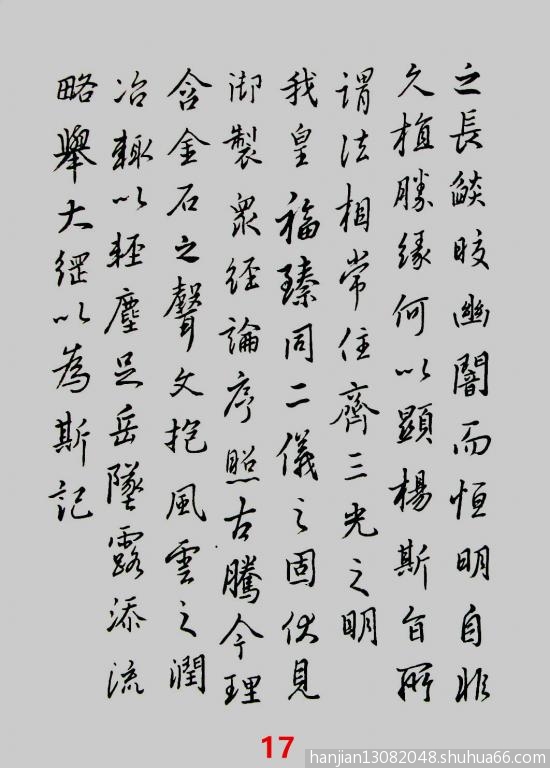 之長燄皎幽闇而恒明自非
久植勝緣何以顯楊斯旨所
謂法相常住齊三光之明
我皇福臻同二儀之固伏見
御製眾經論序照古騰今理
含金石之聲文抱風雲之潤
冶輙以輕塵足岳墜露添流
略舉大綱以為斯記
17
hanjian13082048.shuhua66.com